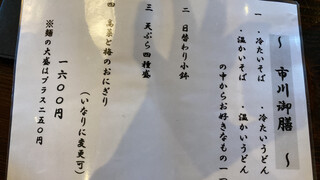 ～ 市川御膳 ～
一 ・冷たいそば ・冷たいうどん
・温かいそば ・温かいうどん
の中からお好きなもの一
二 日替わり小鉢
三 天ぷら四種盛
四 高菜と梅のおにぎり
（いなりに変更可）
一六〇〇円
※麺の大盛はプラス二五〇円